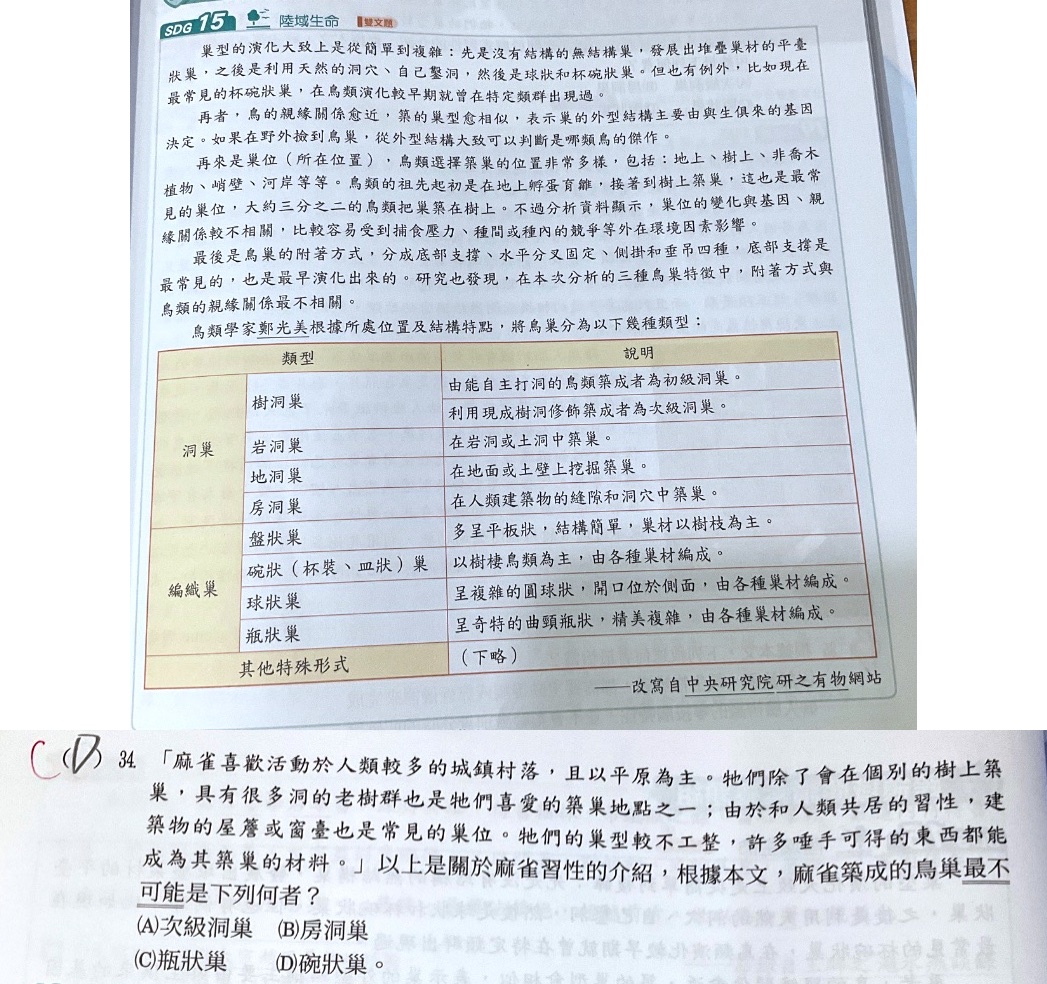 SDG 15 陸域生命 雙文題
巢型的演化大致上是從簡單到複雜：先是沒有結構的無結構巢，發展出堆疊巢材的平臺
狀巢，之後是利用天然的洞穴、自己鑿洞，然後是球狀和杯碗狀巢。但也有例外，比如現在
最常見的杯碗狀巢，在鳥類演化較早期就曾在特定類群出現過。
再者，鳥的親緣關係愈近，築的巢型愈相似，表示巢的外型結構主要由與生俱來的基因
決定。如果在野外撿到鳥巢，從外型結構大致可以判斷是哪類鳥的傑作。
再來是巢位（所在位置），鳥類選擇築巢的位置非常多樣，包括：地上、樹上、非喬木
植物、峭壁、河岸等等。鳥類的祖先起初是在地上孵蛋育雛，接著到樹上築巢，這也是最常
見的巢位，大約三分之二的鳥類把巢築在樹上。不過分析資料顯示，巢位的變化與基因、親
緣關係較不相關，比較容易受到捕食壓力、種間或種內的競爭等外在環境因素影響。
最後是鳥巢的附著方式，分成底部支撐、水平分叉固定、側掛和垂吊四種，底部支撐是
最常見的，也是最早演化出來的。研究也發現，在本次分析的三種鳥巢特徵中，附著方式與
鳥類的親緣關係最不相關。
鳥類學家鄭光美根據所處位置及結構特點，將鳥巢分為以下幾種類型：
類型 說明
洞巢 樹洞巢 由能自主打洞的鳥類築成者為初級洞巢。
利用現成樹洞修飾築成者為次級洞巢。
岩洞巢 在岩洞或土洞中築巢。
地洞巢 在地面或土壁上挖掘築巢。
房洞巢 在人類建築物的縫隙和洞穴中築巢。
編織巢 盤狀巢 多呈平板狀，結構簡單，巢材以樹枝為主。
碗狀（杯裝、皿狀）巢 以樹棲鳥類為主，由各種巢材編成。
球狀巢 呈複雜的圓球狀，開口位於側面，由各種巢材編成。
瓶狀巢 呈奇特的曲頸瓶狀，精美複雜，由各種巢材編成。
其他特殊形式 （下略）
——改寫自中央研究院研之有物網站
C （D） 34. 「麻雀喜歡活動於人類較多的城鎮村落，且以平原為主。牠們除了會在個別的樹上築
巢，具有很多洞的老樹群也是牠們喜愛的築巢地點之一；由於和人類共居的習性，建
築物的屋簷或窗臺也是常見的巢位。牠們的巢型較不工整，許多唾手可得的東西都能
成為其築巢的材料。」以上是關於麻雀習性的介紹，根據本文，麻雀築成的鳥巢最不
可能是下列何者？
(A)次級洞巢 (B)房洞巢
(C)瓶狀巢 (D)碗狀巢。